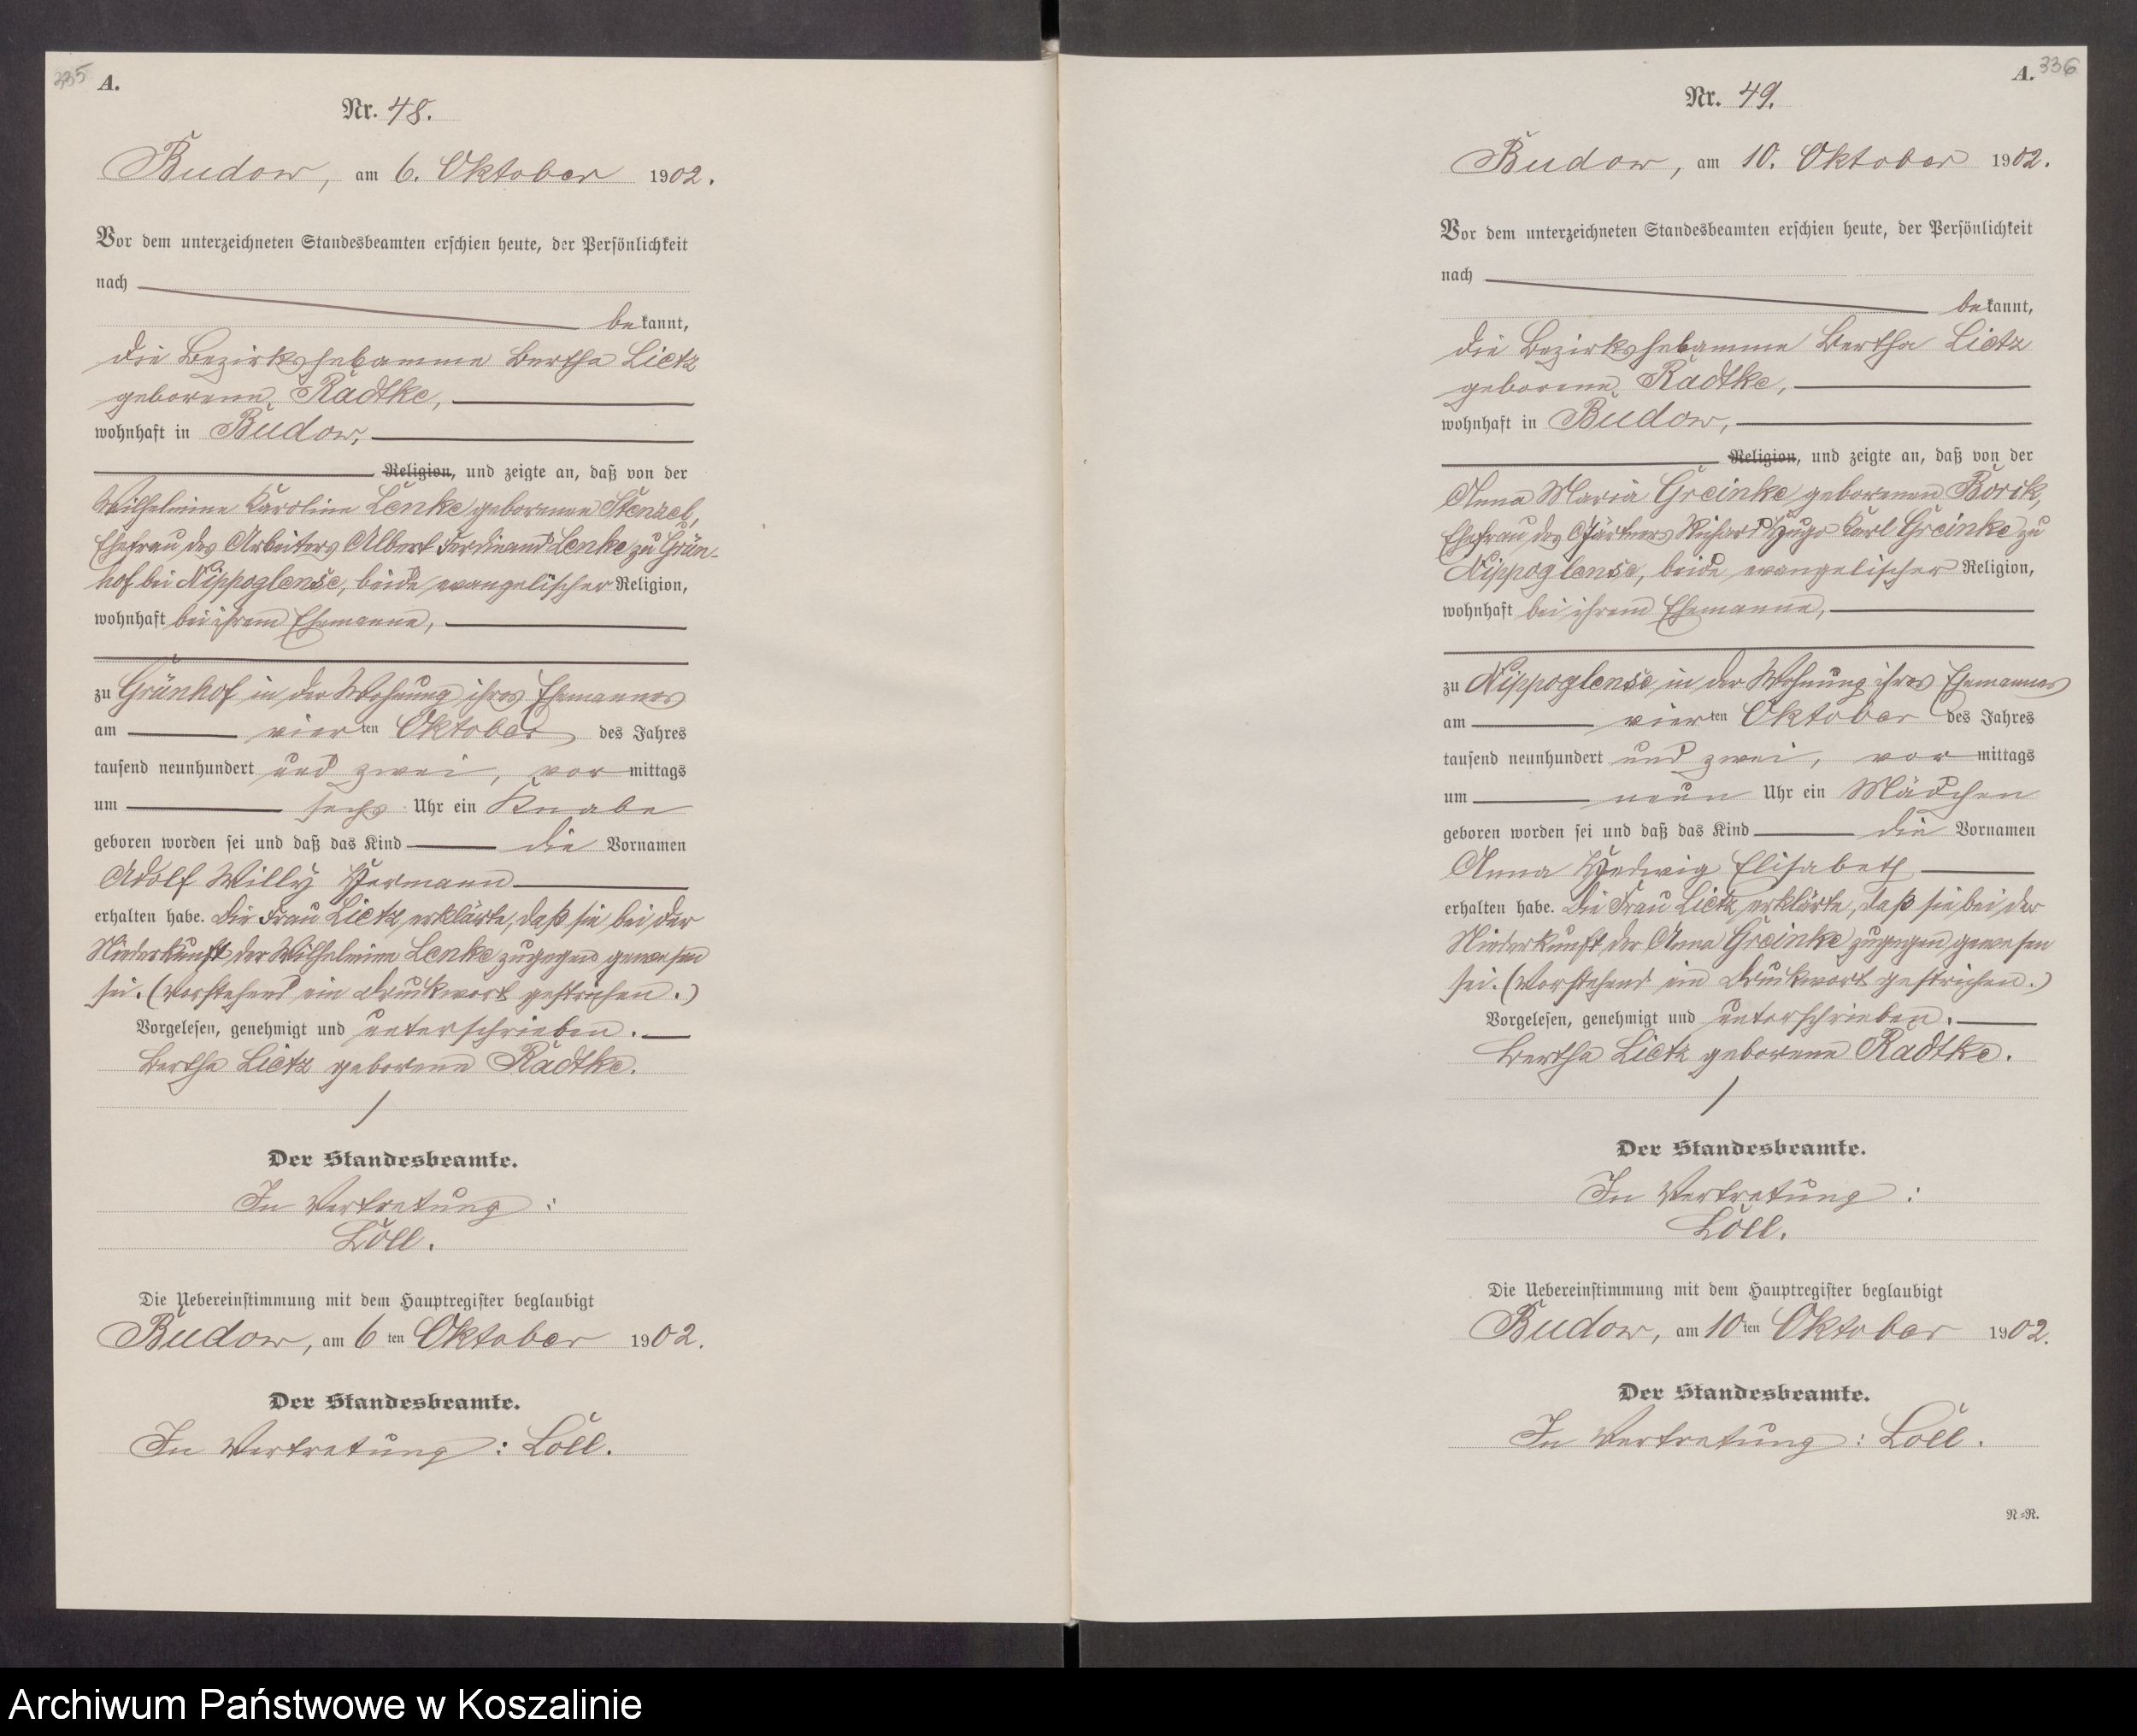 335 A.
Nr. 48.
Budow, am 6. Oktober 1902.
Vor dem unterzeichneten Standesbeamten erschien heute, der Persönlichkeit
nach
bekannt,
die Bezirkshebamme Bertha Lietz
geborene Radtke,
wohnhaft in Budow,
Religion, und zeigte an, daß von der
Wilhelmine Karoline Lenke geborenen Stenzel,
Ehefrau des Arbeiters Albert Ferdinand Lenke zu Grün-
hof bei Nippoglense, beide evangelischer Religion,
wohnhaft bei ihrem Ehemanne,
zu Grünhof in der Wohnung ihres Ehemannes
am vierten Oktober des Jahres
tausend neunhundert und zwei, vormittags
um sechs Uhr ein Knabe
geboren worden sei und daß das Kind die Vornamen
Adolf Willy Hermann
erhalten habe. Die Frau Lietz erklärte, daß sie bei der
Niederkunft der Wilhelmine Lenke zugegen gewesen
sei. (Vorstehend ein Druckwort gestrichen.)
Vorgelesen, genehmigt und unterschrieben.
Bertha Lietz geborene Radtke.
Der Standesbeamte.
In Vertretung:
Löll.
Die Uebereinstimmung mit dem Hauptregister beglaubigt
Budow, am 6ten Oktober 1902.
Der Standesbeamte.
In Vertretung: Löll.
A. 336
Nr. 49.
Budow, am 10. Oktober 1902.
Vor dem unterzeichneten Standesbeamten erschien heute, der Persönlichkeit
nach
bekannt,
die Bezirkshebamme Bertha Lietz
geborene Radtke,
wohnhaft in Budow,
Religion, und zeigte an, daß von der
Anna Maria Greinke geborenen Borck,
Ehefrau des Gärtners Richard Hugo Karl Greinke zu
Nippoglense, beide evangelischer Religion,
wohnhaft bei ihrem Ehemanne,
zu Nippoglense in der Wohnung ihres Ehemannes
am vierten Oktober des Jahres
tausend neunhundert und zwei, vormittags
um neun Uhr ein Mädchen
geboren worden sei und daß das Kind die Vornamen
Anna Hedwig Elisabeth
erhalten habe. Die Frau Lietz erklärte, daß sie bei der
Niederkunft der Anna Greinke zugegen gewesen
sei. (Vorstehend ein Druckwort gestrichen.)
Vorgelesen, genehmigt und unterschrieben.
Bertha Lietz geborene Radtke.
Der Standesbeamte.
In Vertretung:
Löll.
Die Uebereinstimmung mit dem Hauptregister beglaubigt
Budow, am 10ten Oktober 1902.
Der Standesbeamte.
In Vertretung: Löll.
N-R.
Archiwum Państwowe w Koszalinie